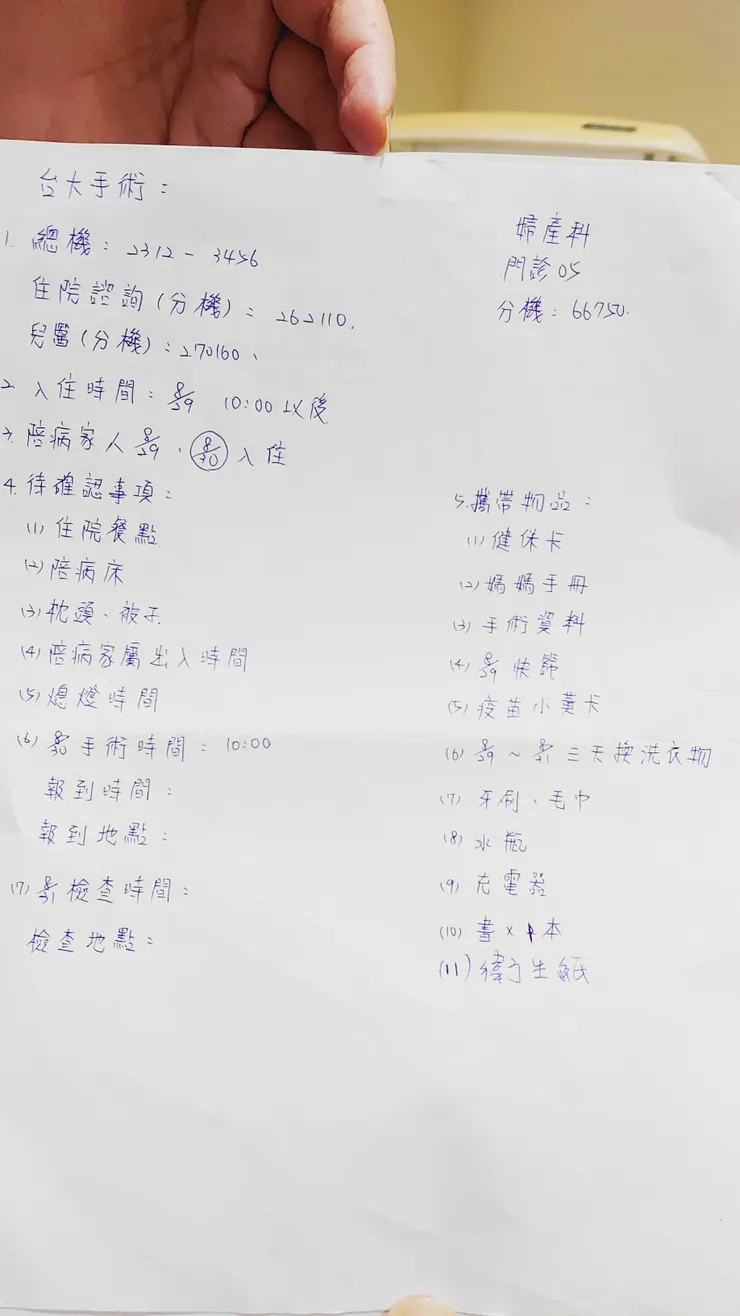 台大手術：
1. 總機：2312-3456
住院諮詢(分機)：262110.
兒醫(分機)：270160、
2. 入住時間：8/29 10:00以後
3. 陪病家人8/29、8/30入住
4. 待確認事項：
(1) 住院餐點
(2) 陪病床
(3) 枕頭、被子
(4) 陪病家屬出入時間
(5) 熄燈時間
(6) 8/30手術時間：10:00
報到時間：
報到地點：
(7) 8/31檢查時間：
檢查地點：
婦產科
門診05
分機：66750.
5. 攜帶物品：
(1) 健保卡
(2) 媽媽手冊
(3) 手術資料
(4) 8/29快篩
(5) 疫苗小黃卡
(6) 8/29～8/31三天換洗衣物
(7) 牙刷、毛巾
(8) 水瓶
(9) 充電器
(10) 書×1本
(11) 衛生紙